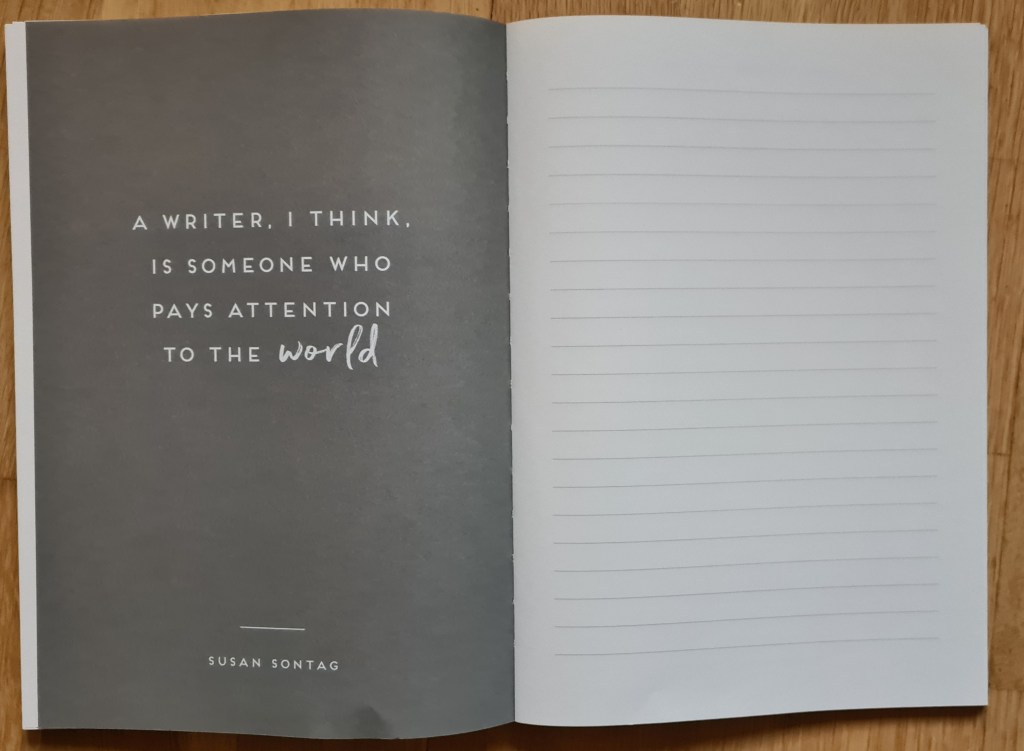 A WRITER, I THINK,
IS SOMEONE WHO
PAYS ATTENTION
TO THE world
SUSAN SONTAG